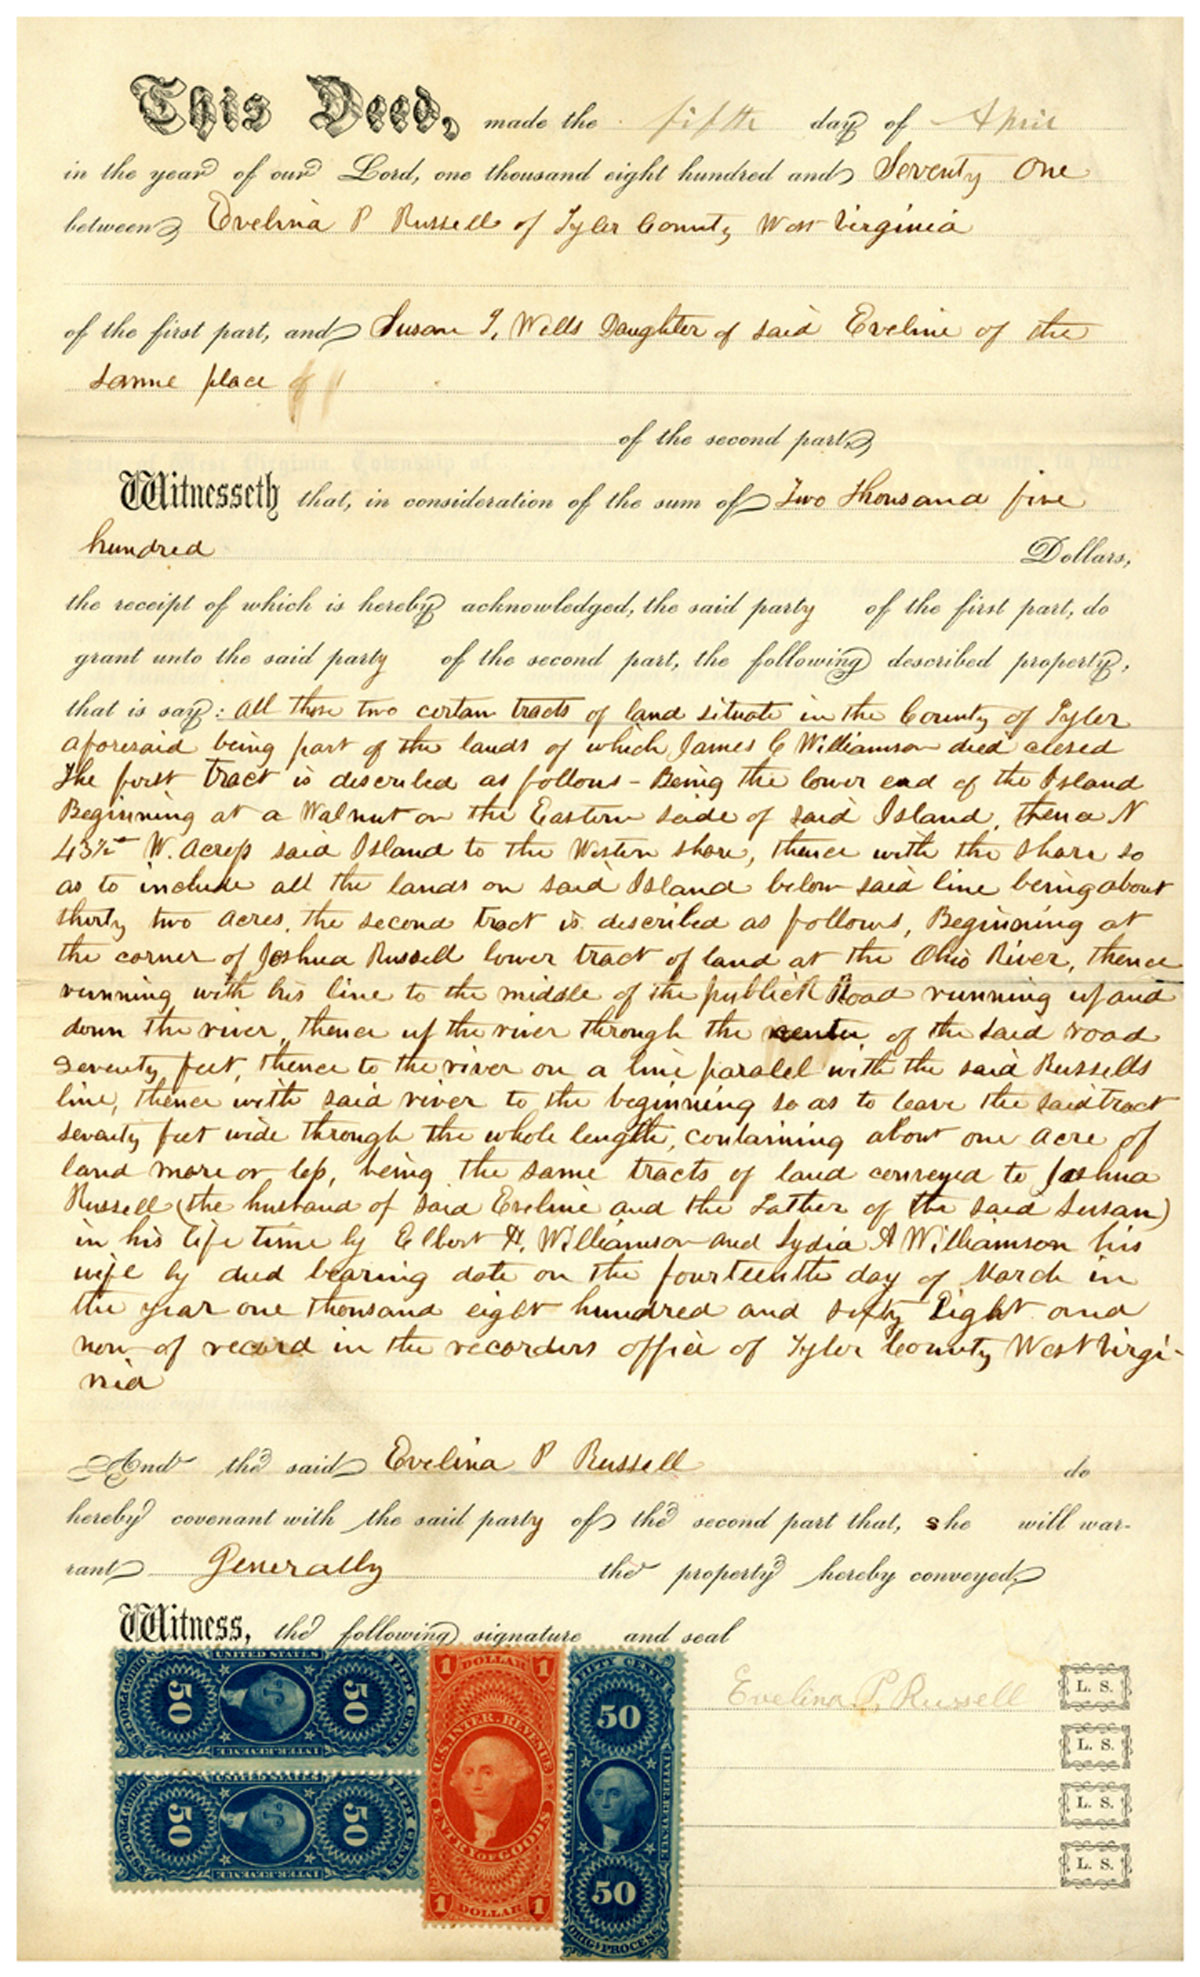 This Deed, made the fifth day of April
in the year of our Lord, one thousand eight hundred and Seventy One
between Evelina P Russell of Tyler County West Virginia
of the first part, and Susan T, Wells Daughter of said Eveline of the
same place
of the second part,
Witnesseth that, in consideration of the sum of Two thousand five
hundred Dollars,
the receipt of which is hereby acknowledged, the said party of the first part, do
grant unto the said party of the second part, the following described property,
that is say: all those two certan tracts of land situate in the County of Tyler
aforesaid being part of the lands of which James C Williamson died
The first tract is described as follows - Being the lower end of the Island
Beginning at a Walnut on the Eastern side of said Island, thence N
43½ W. Across said Island to the Western shore, thence with the shore so
as to include all the lands on said Island below said line being about
thirty two acres, the second tract is described as follows, Beginning at
the corner of Joshua Russell lower tract of land at the Ohio River, thence
running with his line to the middle of the publick Road running up and
down the river, thence up the river through the center of the said road
seventy feet, thence to the river on a line paralel with the said Russells
line, thence with said river to the beginning so as to leave the said tract
seventy feet wide through the whole length, containing about one acre of
land more or less, being the same tracts of land conveyed to Joshua
Russell (the husband of said Eveline and the Father of the said Susan)
in his life time by Elbert H. Williamson and Lydia A Williamson his
wife by deed bearing date on the fourteenth day of March in
the year one thousand eight hundred and sixty Eight and
now of record in the recorders office of Tyler County West Virgi-
nia
And the said Evelina P Russell do
hereby covenant with the said party of the second part that, she will war-
rant Generally the property hereby conveyed,
Witness, the following signature and seal
Evelina P. Russell L. S.
L. S.
L. S.
L. S.
UNITED STATES
50 50
FIFTY CENTS
INTER. REVENUE
UNITED STATES
50 50
INTER. REVENUE
1 DOLLAR 1
U.S. INTER. REVENUE
ENTRY OF GOODS
1 DOLLAR 1
FIFTY CENTS
50
INTER. REVENUE
50
ORIG. PROCESS